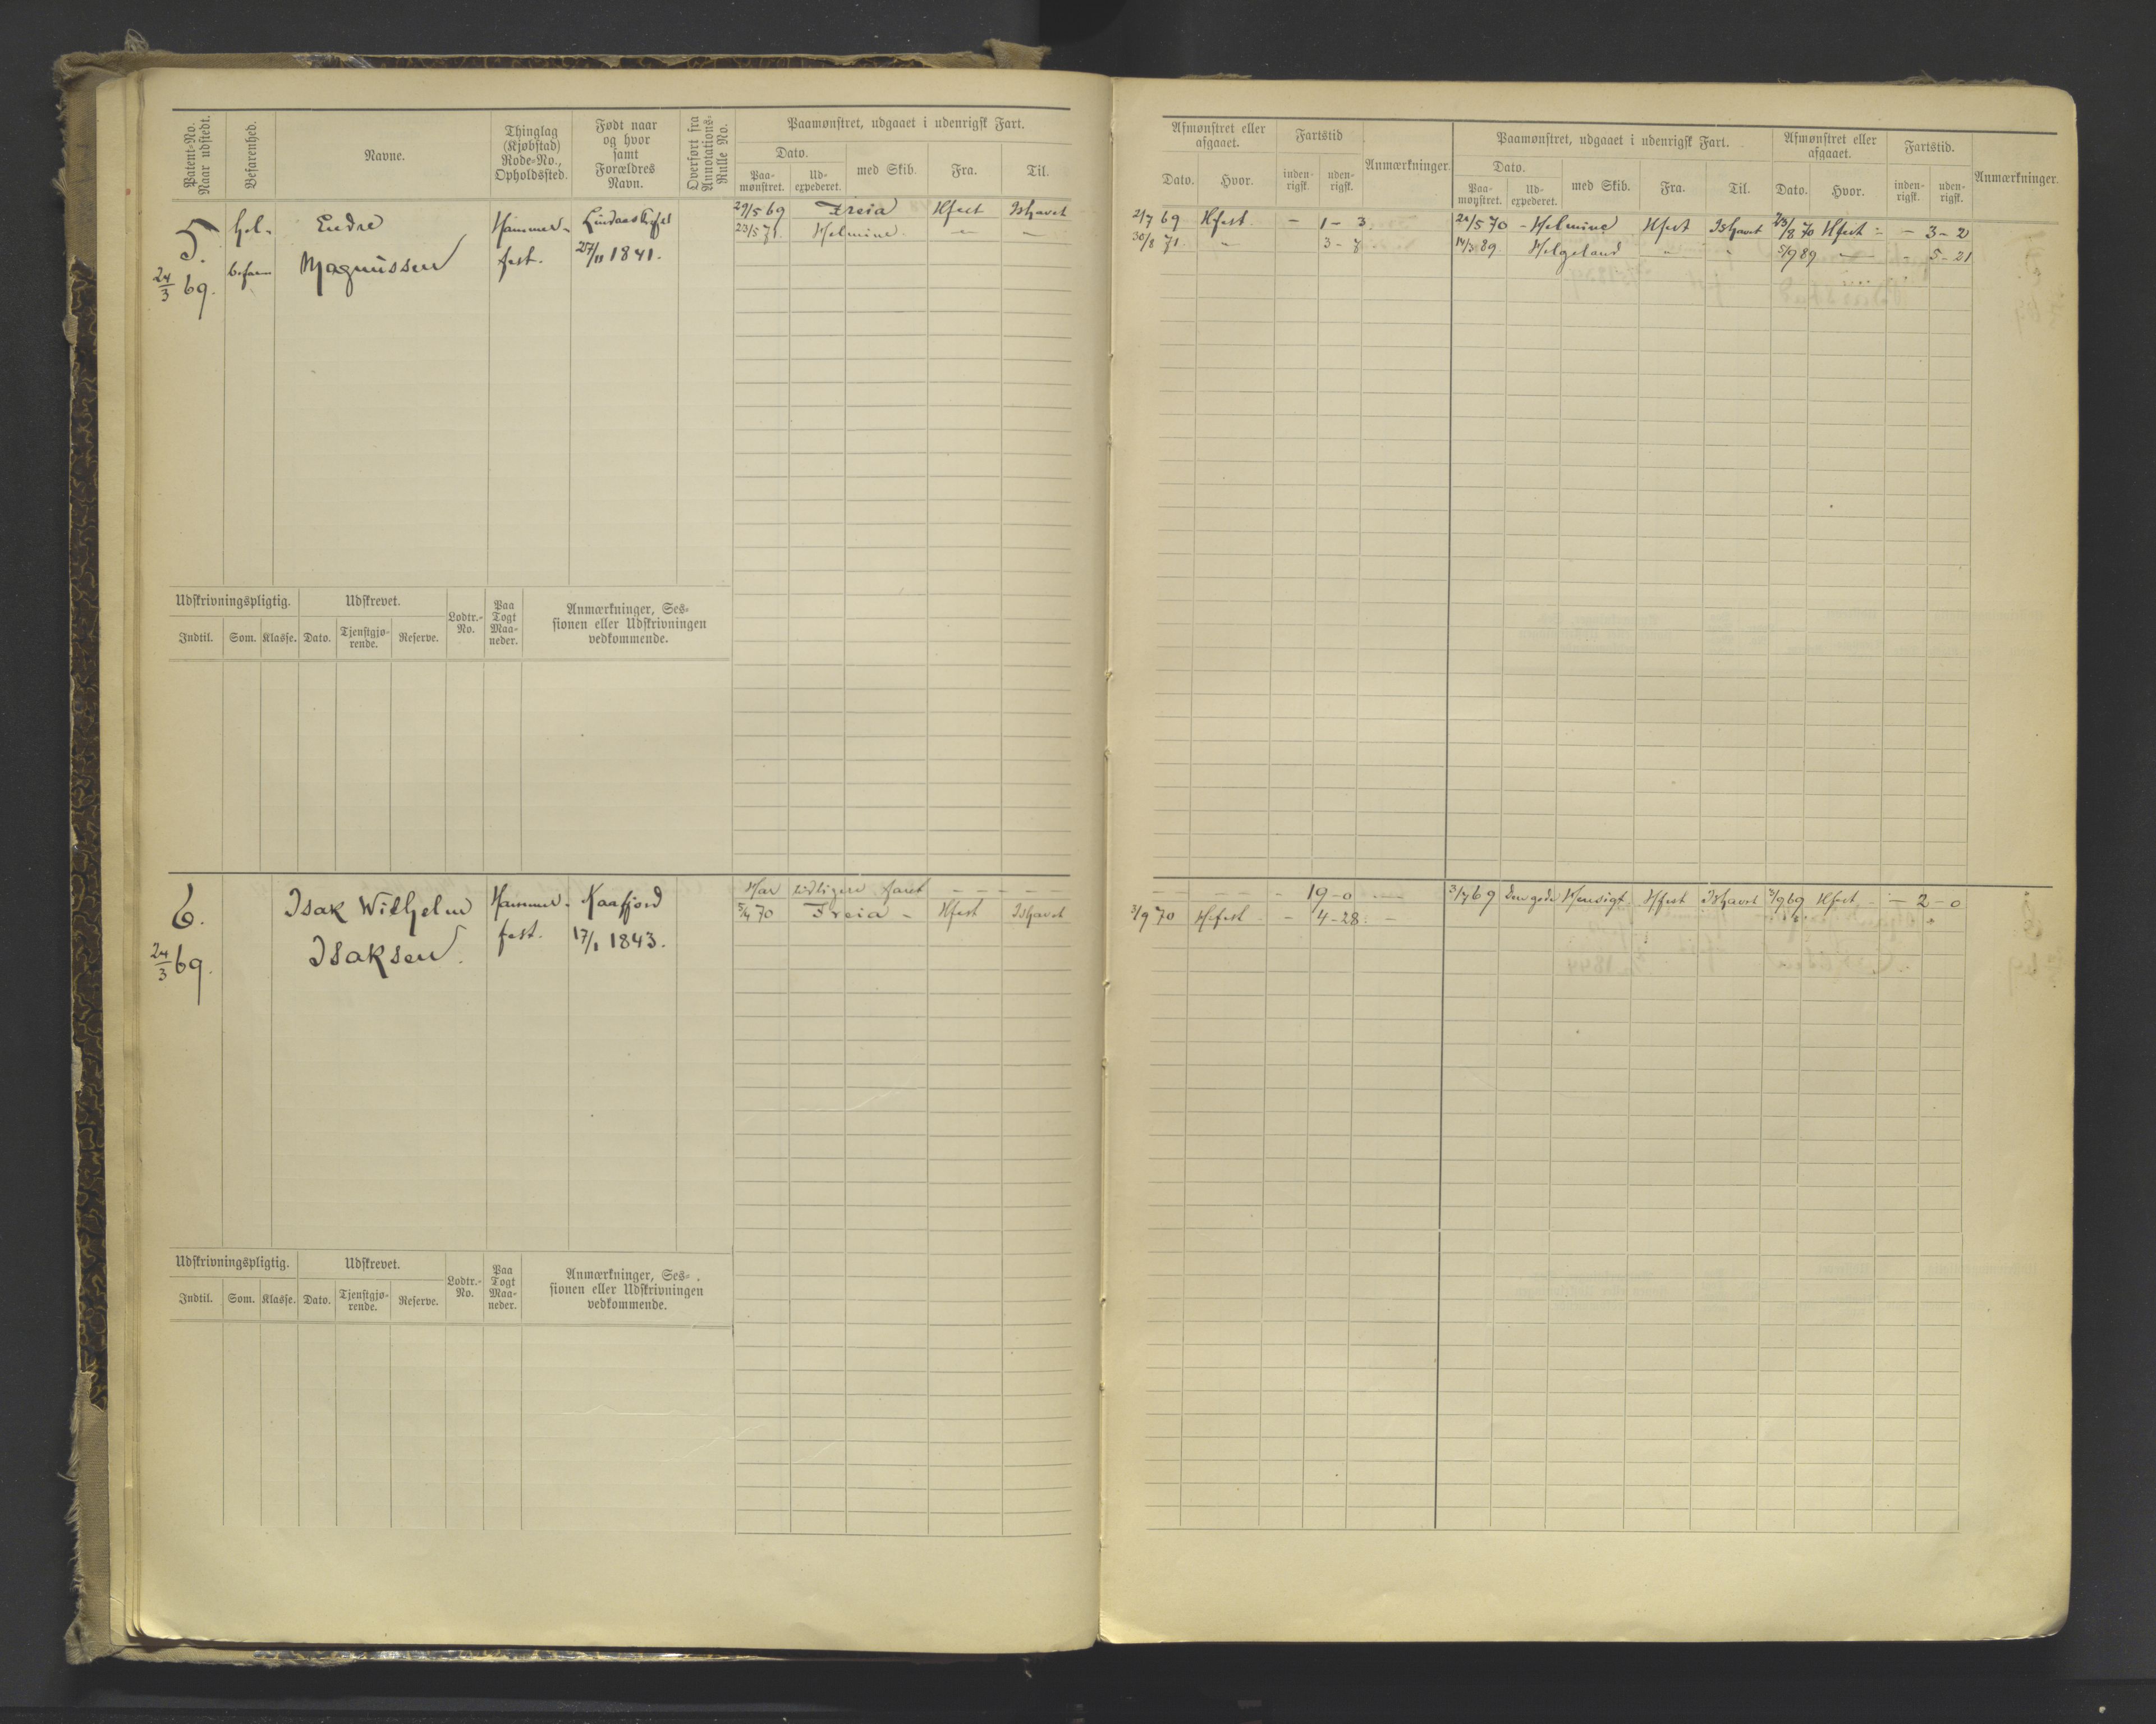 Patent-No. Naar udstedt.
Befarenhed.
Navne.
Thinglag (Kjøbstad) Rode-No., Opholdssted.
Født naar og hvor samt Forældres Navn.
Overført fra Annotations-Rulle No.
Paamønstret, udgaaet i udenrigsk Fart.
Dato.
Paa-mønstret.
Ud-expederet.
med Skib.
Fra.
Til.
Afmønstret eller afgaaet.
Dato.
Hvor.
Fartstid
inden-rigsk.
uden-rigsk.
Anmærkninger.
Paamønstret, udgaaet i udenrigsk Fart.
Dato.
Paa-mønstret.
Ud-expederet.
med Skib.
Fra.
Til.
Afmønstret eller afgaaet.
Dato.
Hvor.
Fartstid.
inden-rigsk.
uden-rigsk.
Anmærkninger.
5.
24/3 69.
Hel-
befaren
Endre
Magnussen
Hammer-
fest.
1841.
29/5 69 Freia Hfest Ishavet
23/5 71. Helmine. — —
2/7 69 Hfest. - 1 - 3
30/8 71. " 3 - 8
21/5 70 - Helmine Hfest Ishavet 23/8 70 Hfest - - 3 - 2
14/3 89 Helgeland " " 5/9 89 — - 5 - 21
Udskrivningspligtig.
Udskrevet.
Lodtr.-No.
Paa Togt Maa-neder.
Anmærkninger, Ses-
sionen eller Udskrivningen
vedkommende.
Indtil. Som. Klasse. Dato. Tjenstgjø-rende. Reserve.
6.
24/3 69.
Isak Wilhelm
Isaksen.
Hammer-
fest.
Kaafjord
17/1 1843.
Har tidligere faret - - - - -
5/4 70 Freia - Hfest Ishavet
- - - - - 19 - 0
3/9 70 Hfest - - 4 - 28. -
3/7 69 Den gode Hensigt Hfest Ishavet 3/9 69 Hfest - - 2 - 0
Udskrivningspligtig.
Udskrevet.
Lodtr.-No.
Paa Togt Maa-neder.
Anmærkninger, Ses-
sionen eller Udskrivningen
vedkommende.
Indtil. Som. Klasse. Dato. Tjenstgjø-rende. Reserve.